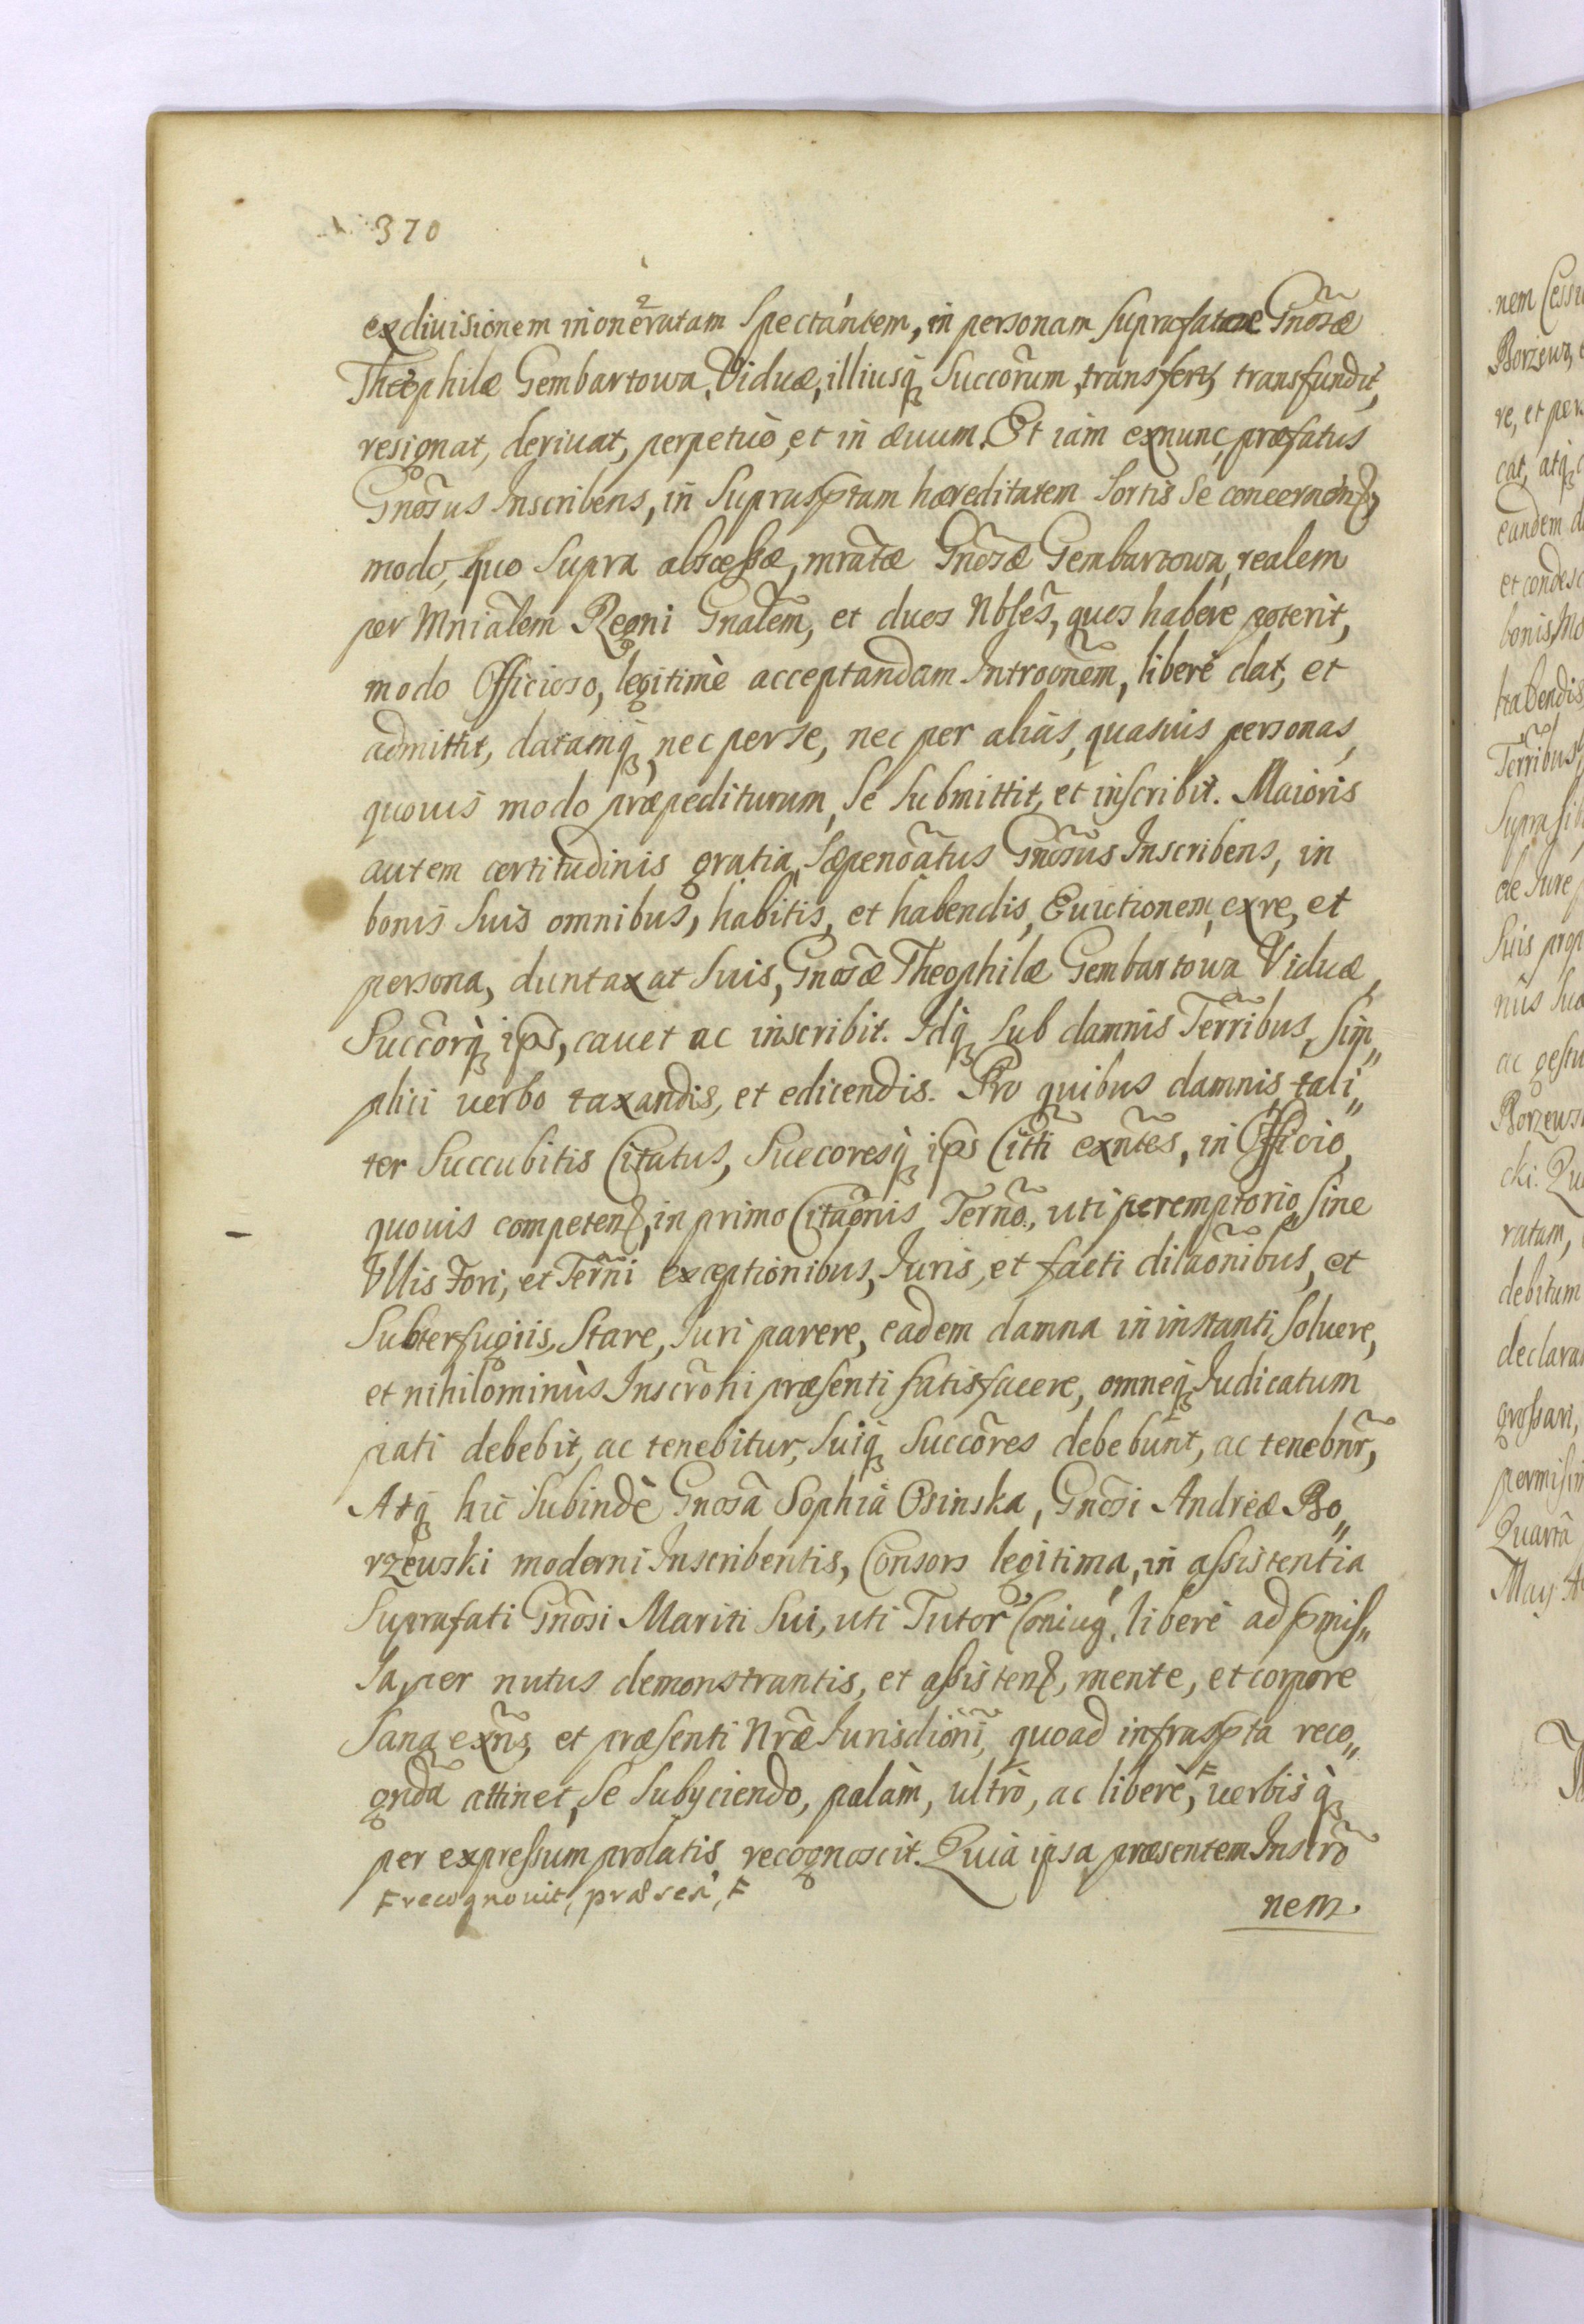 370
exdiuisionem inoneratam Spectantem, in personam Suprafatae Gnosæ
Theophilæ Gembartowa, Viduæ, illiusq́ Succorum, transfert, transfundit,
resignat, deriuat, perpetuò, et in æuum. Et iam exnunc, præfatus
Gnosus Inscribens, in Suprasptam hæreditatem Sortis Se concernen,
modo, quo Supra abscessæ, mratæ Gnosæ Gembartowa, realem
per Mnialem Regni Gnalem, et duos Nbles, quos habere poterit,
modo Officioso, legitimè acceptandam Introonem, liberè dat, et
admittit, datamq́, nec perse, nec per alias, quasuis personas,
quouis modo præpediturum, Se Submittit, et inscribit. Maioris
autem certitudinis gratia, Sæpenoatus Gnosus Inscribens, in
bonis Suis omnibus, habitis, et habendis, Euictionem, exre, et
persona, duntaxat Suis, Gnosæ Theophilæ Gembartowa Viduæ,
Succorq́ ips, cauet ac inscribit. Idq́ Sub damnis Terribus, Sim„
plici uerbo taxandis, et edicendis. Pro quibus damnis, tali„
ter Succubitis Citatus, Succoresq́ ips Citti exntes, in Officio,
quouis competen, in primo Citaonis Terno, uti peremptorio, Sine
Vllis Fori, et Terni exceptionibus, Iuris, et facti dilaonibus, et
Subterfugiis, Stare, Iuri parere, eadem damna in instanti Soluere,
et nihilominùs Inscroni præsenti Satisfacere, omneq́ Iudicatum
pati debebit, ac tenebitur, Suiq́ Succores debebunt, ac tenebnr,
Atq́ hic Subindè Gnosa Sophia Osinska, Gnosi Andreæ Bo„
rzewski moderni Inscribentis, Consors legitima, in assistentia
Suprafati Gnosi Mariti Sui, uti Tutor Coniug, liberè ad pmis„
Sa, per nutus demonstrantis, et assisten, mente, et corpore
Sana exns, et præsenti Nræ Iurisdioni, quoad infraspta reco„
gnda attinet, Se Subyciendo, palàm, ultrò, ac liberè, F uerbis q́
per expressum prolatis recognoscit. Quia ipsa præsentem Inscro
F recognouit, F
nem.